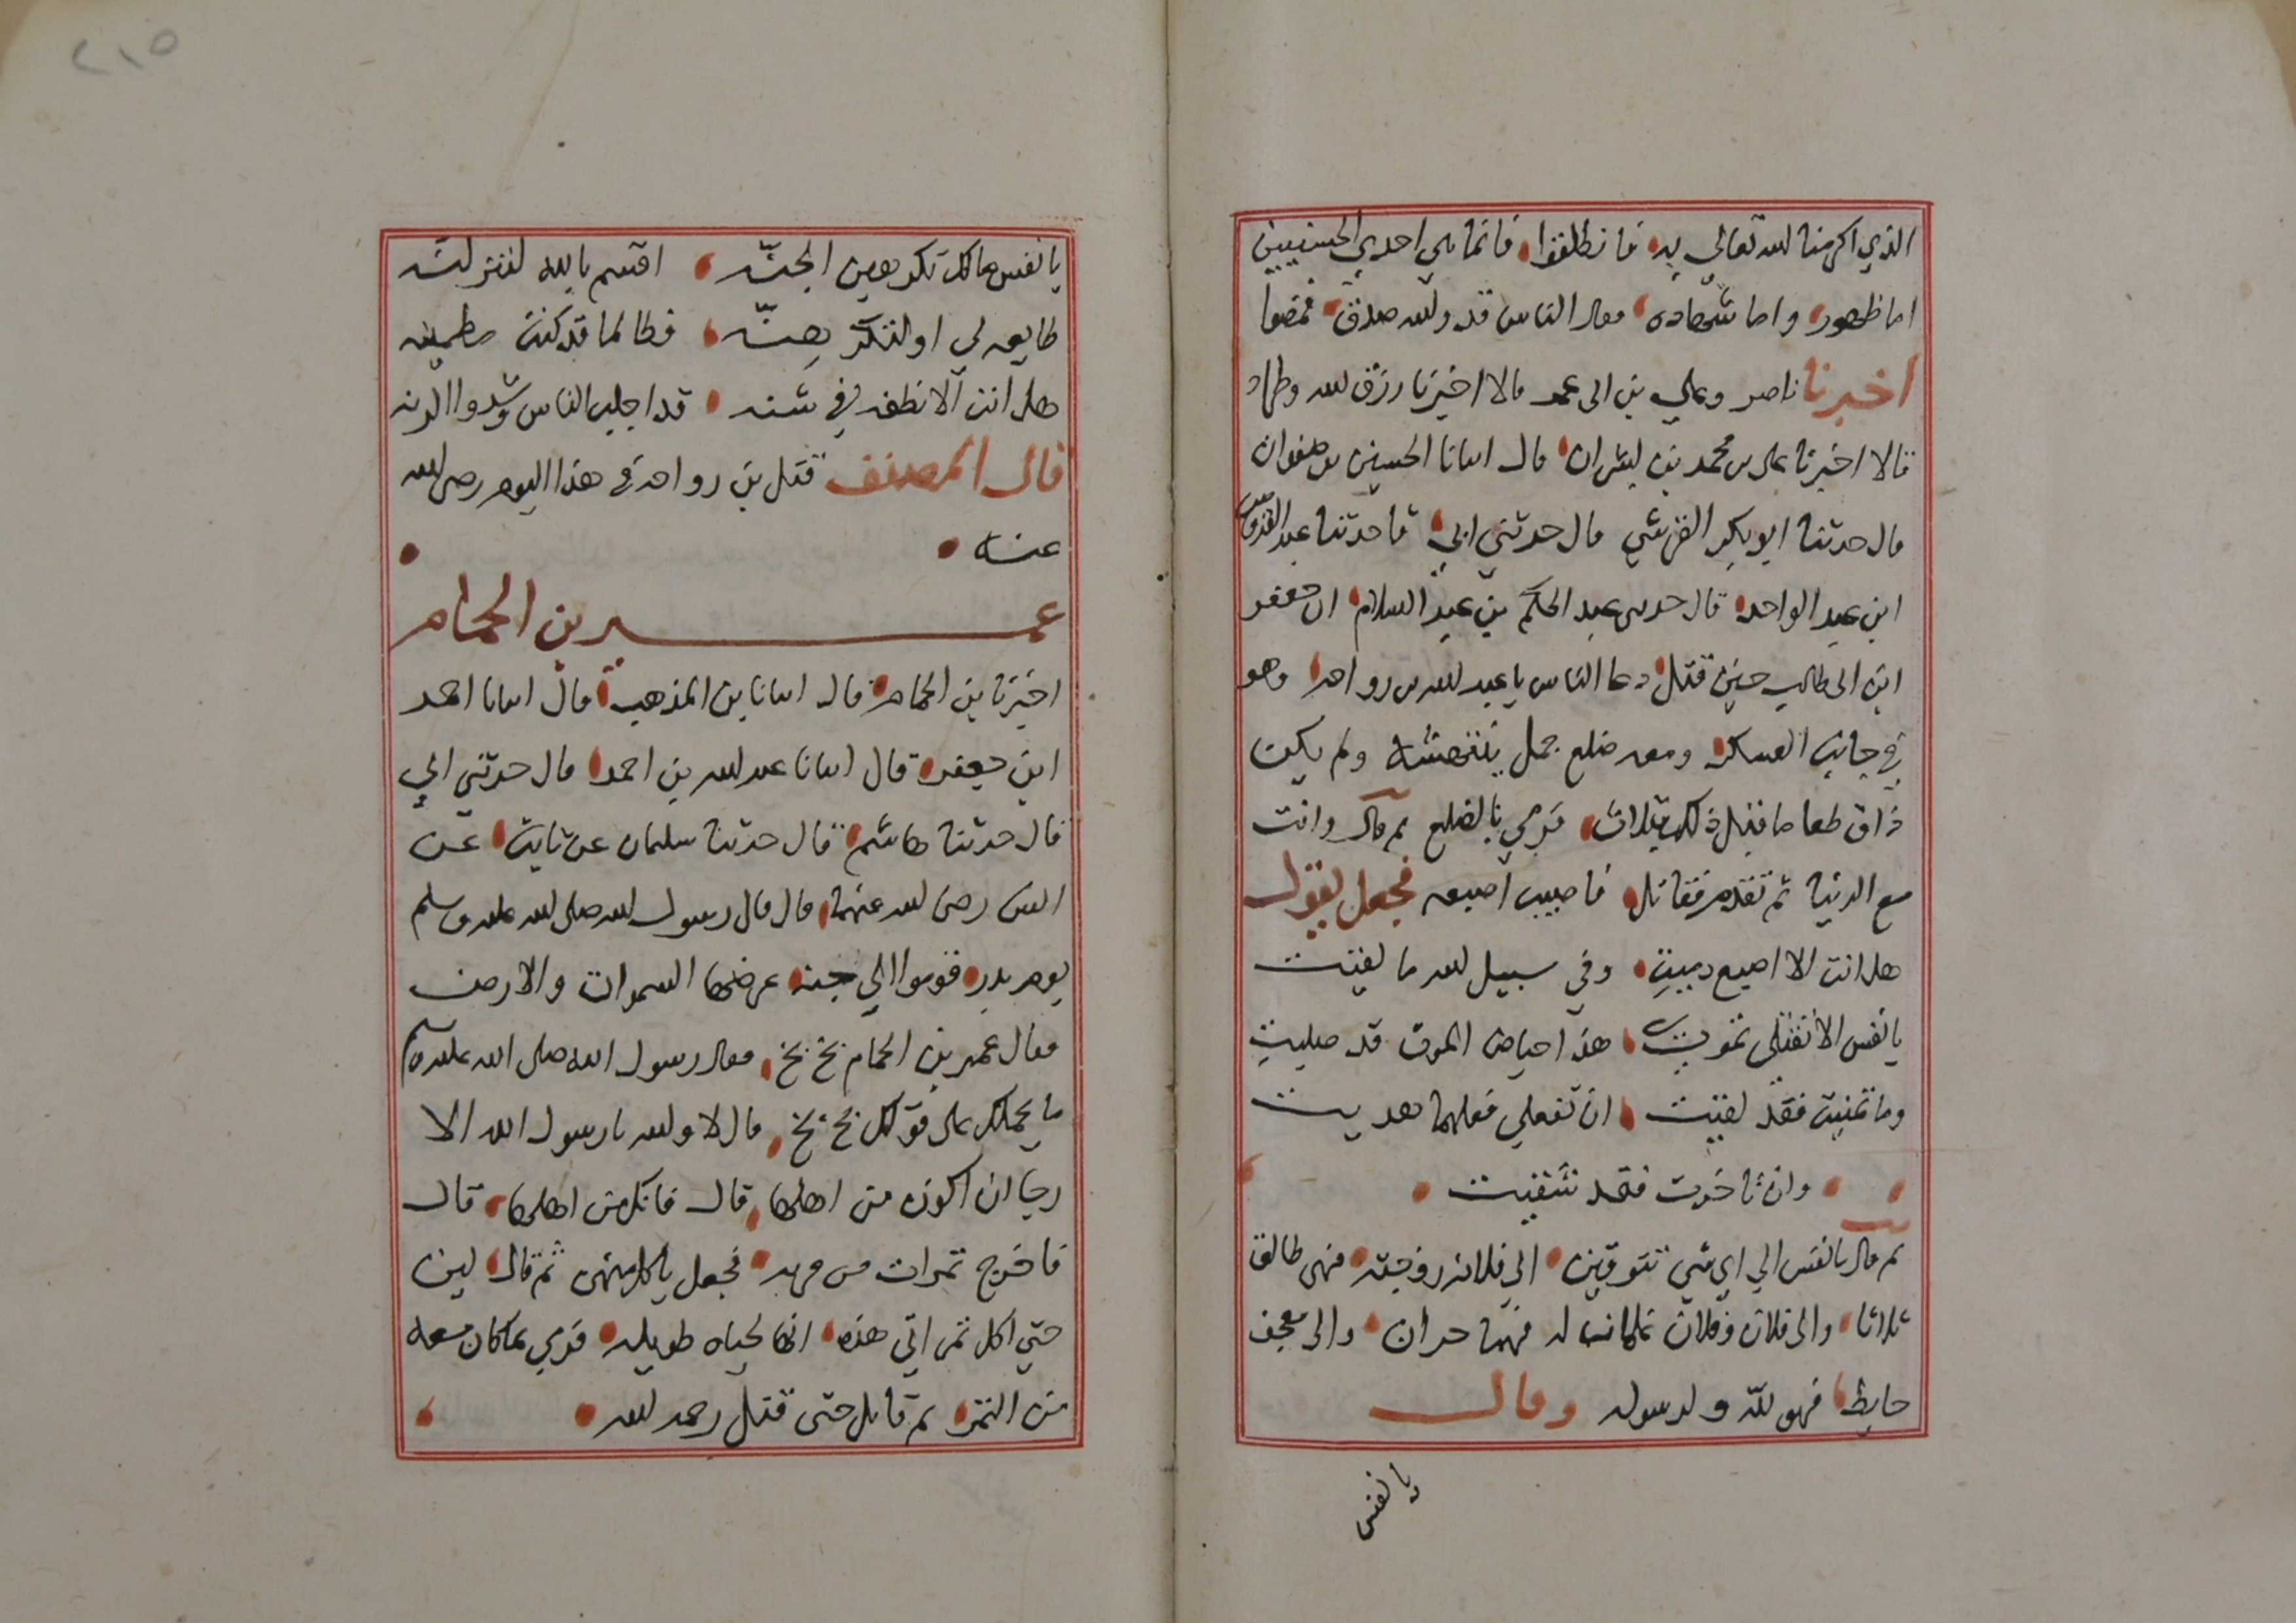 الذي اكرمنا الله تعالى به فانطلقوا فانما هي احدي الحسنيين
اما ظهور واما شهاده فقال الناس قد والله صدق فمضوا
اخبرنا ناصر وعلي بن ابي عمر قالا اخبرنا رزق الله وطراد
قالا اخبرنا علي بن محمد بن بشران قال انبانا الحسين بن صفوان
قال حدثنا ابو بكر القرشي قال حدثني ابي ثنا حدثنا عبد القدوس
ابن عبد الواحد قال حدثني عبد الحكم بن عبد السلام ان جعفر
ابن ابي طالب حين قتل دعا الناس يا عبد الله بن رواحه وهو
في جانب العسكر ومعه ضلع جمل ينتهشه ولم يكن
ذاق طعاما قبل ذلك بثلاث فرمي بالضلع ثم قال وانت
مع الدنيا ثم تقدم فقاتل فاصيب اصبعه فجعل يقول
هل انت الا اصبع دميت وفي سبيل الله ما لقيت
يا نفس الا تقتلي تموتي هذا حياض الموت قد صليت
وما تمنيت فقد لقيت ان تفعلي فعلهما هديت
وان تاخرت فقد شقيت
ثم قال يا نفس الي اي شي تتوقين الي فلانه زوجته فهي طالق
ثلاثا والى فلان وفلان غلمانا له فهما حران والى معجف
حايط فهو لله ولرسوله وقال
يا نفس
٢١٥
يا نفس مالك تكرهين الجنّه اقسم بالله لتنزلنّه
طايعه لي او لتكرهنّه فطالما قد كنت مطمينه
هل انت الا نطفه في شنه قد اجلب الناس وشدوا الرنه
قال المصنف قتل بن رواحه في هذا اليوم رضي الله
عنه
عمير بن الحمام
اخبرنا بن الحمام قال انبانا بن المذهب قال انبانا احمد
ابن جعفر قال انبانا عبد الله بن احمد قال حدثني ابي
قال حدثنا هاشم قال حدثنا سلمان عن ثابت عن
انس رضي الله عنهما قال قال رسول الله صلى الله عليه وسلم
يوم بدر قوموا الي جنه عرضها السموات والارض
فقال عمير بن الحمام بخ بخ فقال رسول الله صلى الله عليه وسلم
ما يحملك على قولك بخ بخ قال لا والله يا رسول الله الا
رجا ان اكون من اهلها قال فانك من اهلها قال
فاخرج تمرات من قربه فجعل ياكل منهن ثم قال لين
حتي اكل تمراتي هذه انها لحياه طويله فرمي بما كان معه
من التمر ثم قاتل حتى قتل رحمه الله